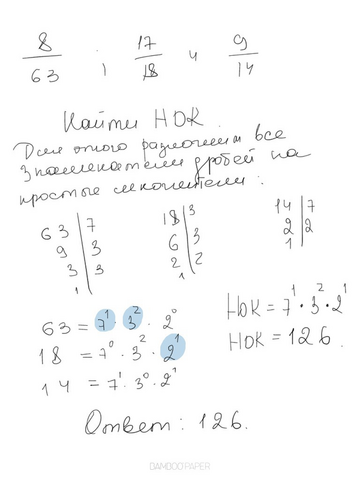 8/63 ; 17/18 и 9/14
Найти НОК.
Для этого разложим все
знаменатели дробей на
простые множители:
63 | 7
9 | 3
3 | 3
1
18 | 3
6 | 3
2 | 2
1
14 | 7
2 | 2
1
63 = 7¹ · 3² · 2⁰
18 = 7⁰ · 3² · 2¹
14 = 7¹ · 3⁰ · 2¹
НОК = 7¹ · 3² · 2¹
НОК = 126.
Ответ: 126.
BAMBOO PAPER